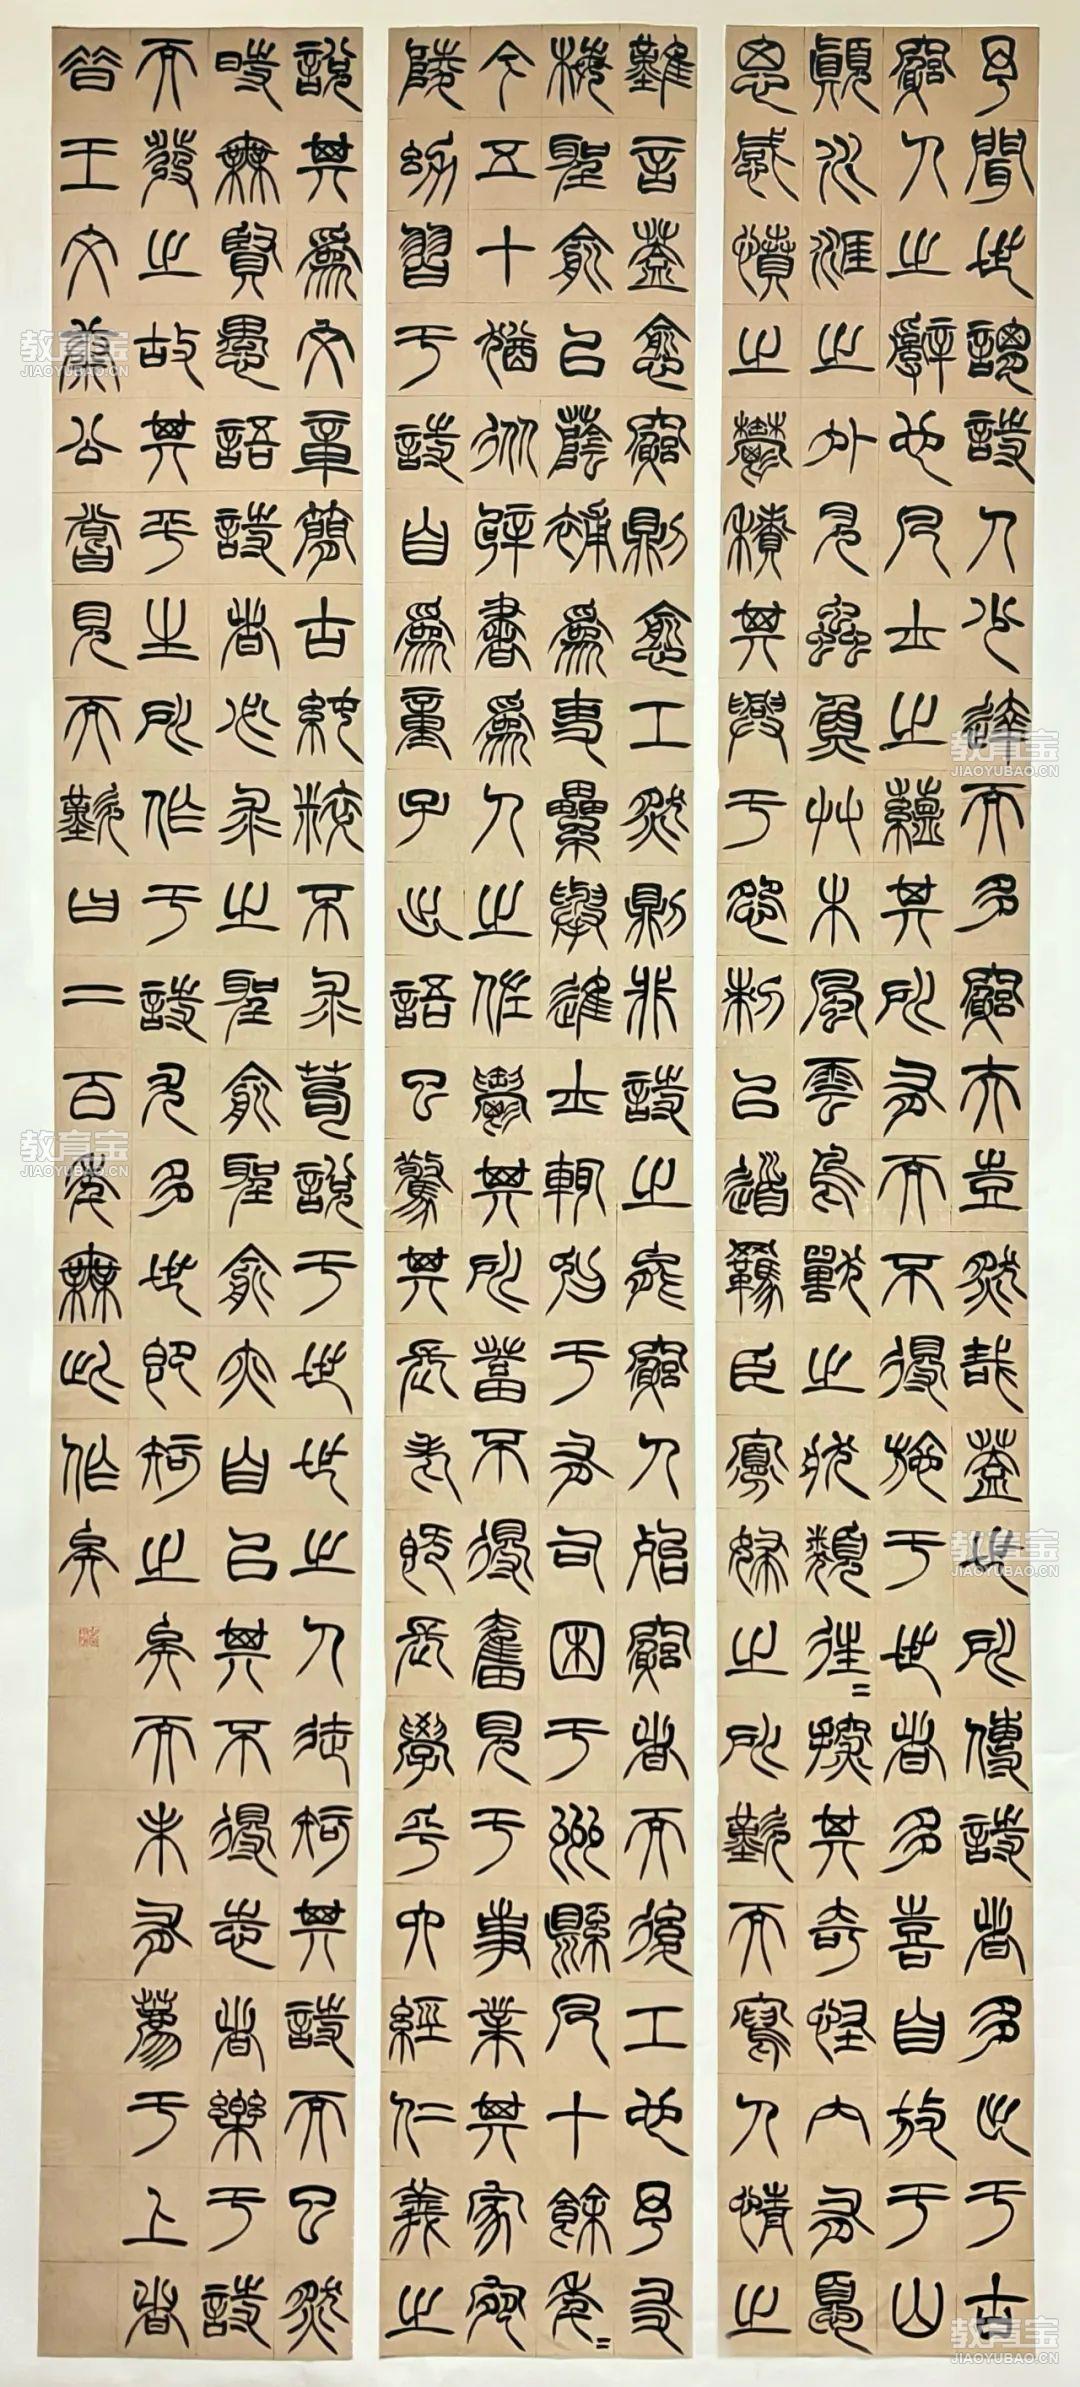 予聞世謂詩人少達而多窮夫豈然哉蓋世所傳詩者多出于古
窮人之辭也凡士之蘊其所有而不得施于世者多喜自放于山
顛水涯之外見蟲魚艸木風雲鳥獸之狀類往=探其奇怪内有憂
思感憤之鬱積其興于怨刺以道羈臣寡婦之所歎而寫人情之
難言蓋愈窮則愈工然則非詩之能窮人殆窮者而後工也予友
梅聖俞以蔭補為吏累舉進士輒抑于有司困于州縣凡十餘年=
今五十猶從辟書為人之佐鬱其所蓄不得奮見于事業其家宛
陵幼習于詩自為童子出語已驚其長老既長學乎六經仁義之
說其為文章簡古純粹不求苟說于世世之人徒知其詩而已然
時無賢愚語詩者必求之聖俞聖俞亦自以其不得志者樂于詩
而發之故其平生所作于詩尤多世即知之矣而未有薦于上者
昔王文康公嘗見而歎曰二百年無此作矣
教育宝
JIAOYUBAO.CN
教育宝
JIAOYUBAO.CN
教育宝
JIAOYUBAO.CN
教育宝
JIAOYUBAO.CN
教育宝
JIAOYUBAO.CN